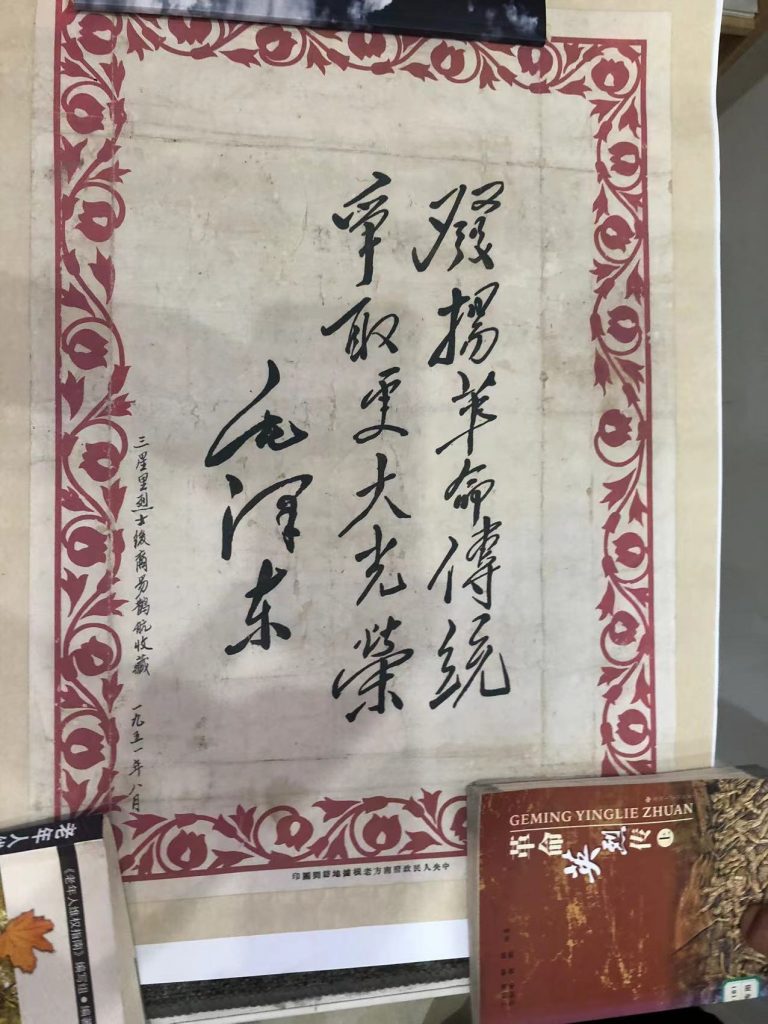 發揚革命傳統
爭取更大光榮
毛澤东
三星里烈士後裔易鶴航收藏 一九五一年八月
中央人民政府南方老根據地訪問團印
GEMING YINGLIE ZHUAN
革命英烈传
上
老年人维
《老年人维权指南》编写组●编